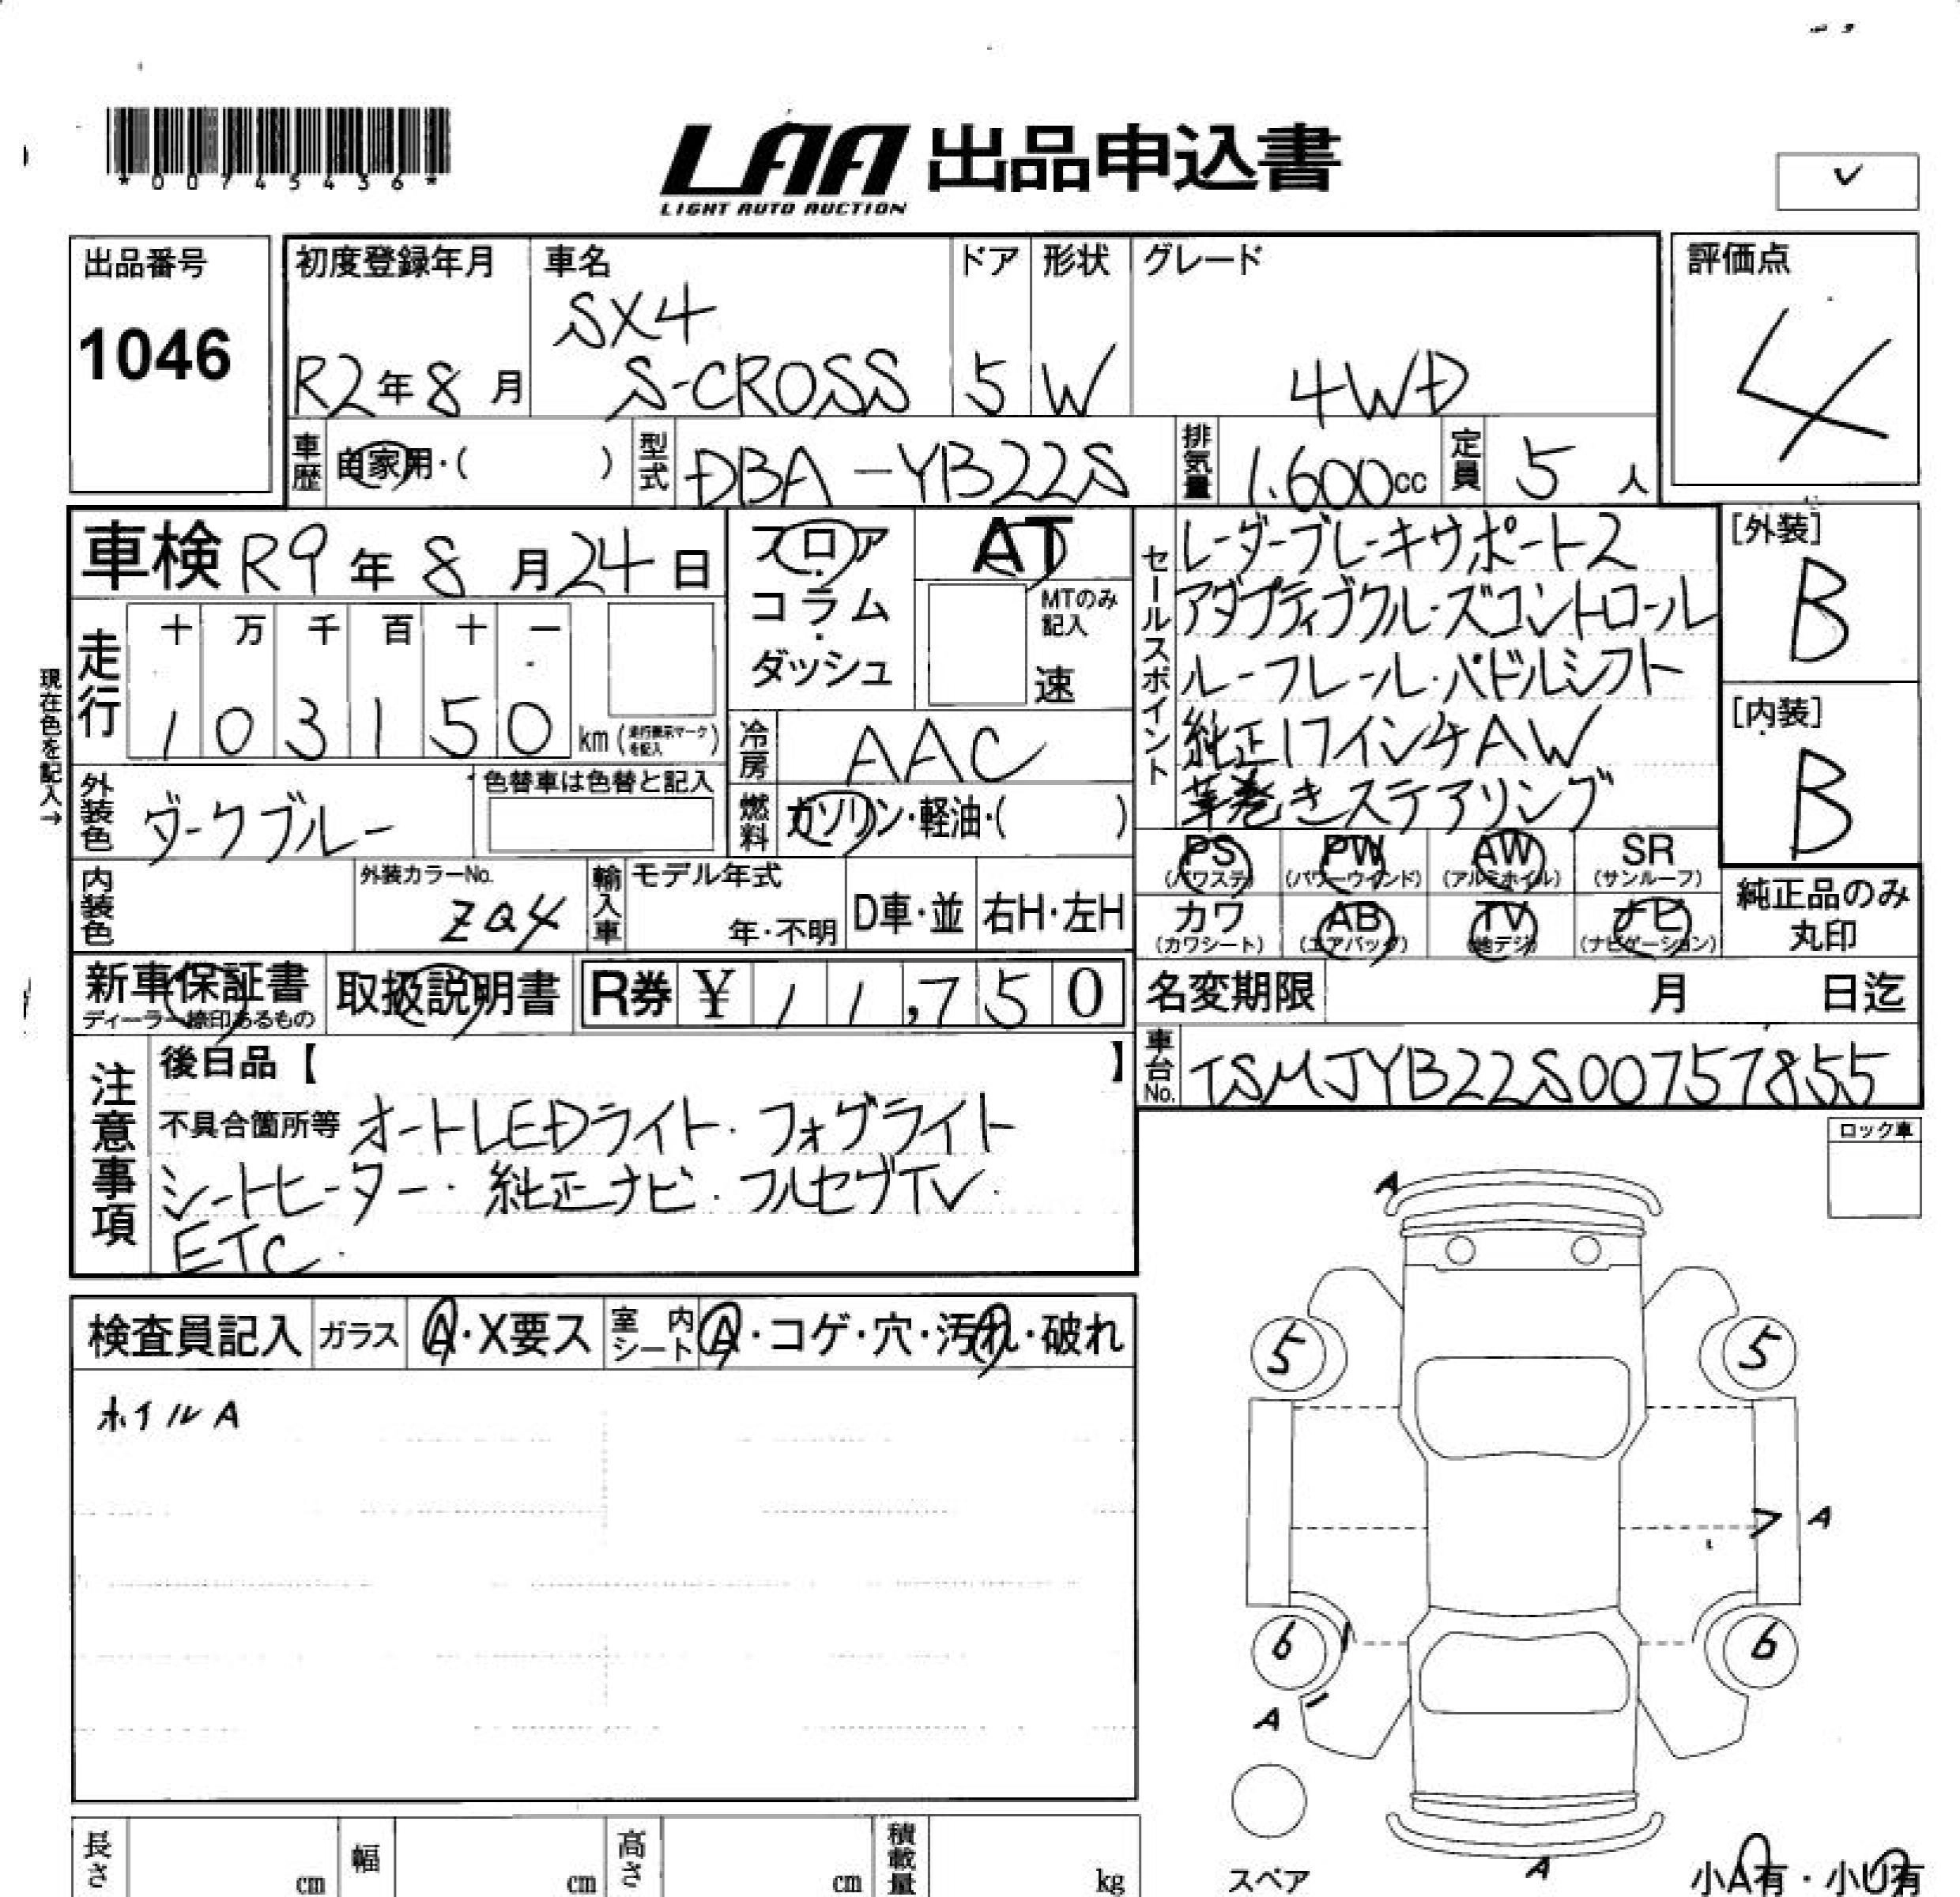 *00745436*
LAA 出品申込書
LIGHT AUTO AUCTION
✓
出品番号
1046
初度登録年月
R2年8月
車名
SX4
S-CROSS
ドア
5
形状
W
グレード
4WD
評価点
4
車歴 自家用・( )
型式 DBA-YB22S
排気量 1.600cc
定員 5人
車検 R9年8月24日
フロア
・
コラム
・
ダッシュ
AT
MTのみ
記入
速
走行
十 万 千 百 十 一
1 0 3 1 5 0 km (走行表示マークを記入)
現在色を記入→
冷房 AAC
外装色 ダークブルー
色替車は色替と記入
燃料 ガソリン・軽油・( )
内装色
外装カラーNo.
ZQ4
輸入車
モデル年式
年・不明
D車・並
右H・左H
新車保証書
ディーラー捺印あるもの
取扱説明書
R券 ¥ 11,750
セールスポイント
レーダーブレーキサポート2
アダプティブクルーズコントロール
ルーフレール・パドルシフト
純正17インチAW
革巻きステアリング
[外装]
B
[内装]
B
PS
(パワステ)
PW
(パワーウインド)
AW
(アルミホイル)
SR
(サンルーフ)
カワ
(カワシート)
AB
(エアバッグ)
TV
(地デジ)
ナビ
(ナビゲーション)
純正品のみ
丸印
名変期限 月 日迄
車台No. TSMJYB22S00757855
注意事項
後日品【 】
不具合箇所等 オートLEDライト・フォグライト
シートヒーター・純正ナビ・フルセグTV・
ETC.
ロック車
検査員記入
ガラス A・X要ス
室内シート A・コゲ・穴・汚れ・破れ
ホイルA
A
5
5
A
6
6
A
A
スペア
小A有・小U有
長さ cm
幅 cm
高さ cm
積載量 kg